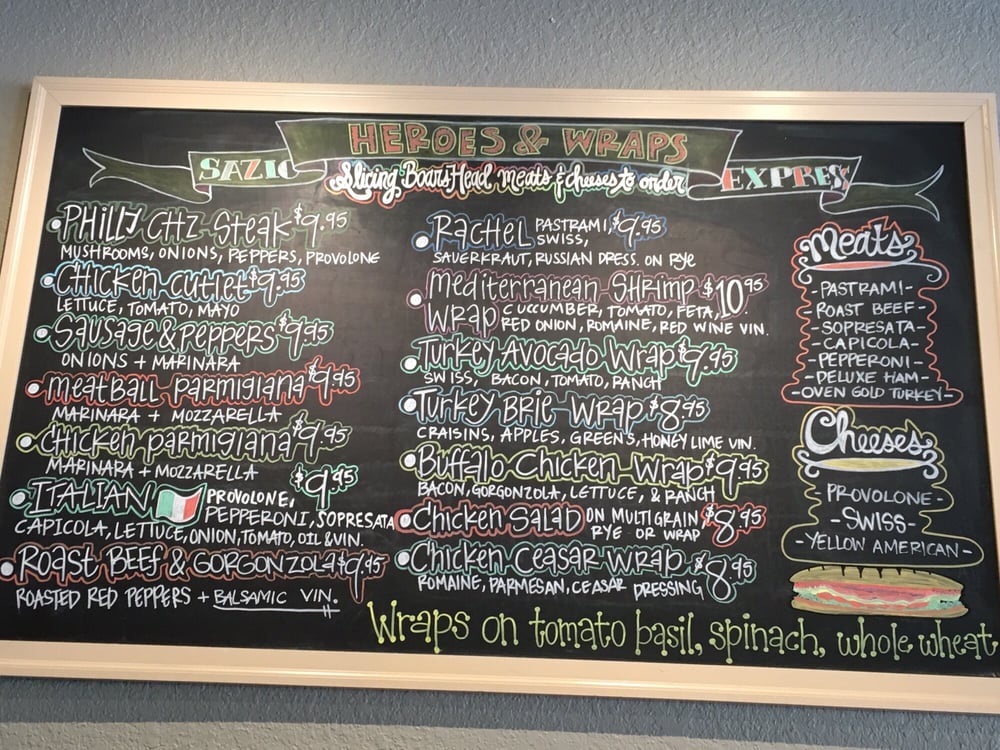 HEROES & WRAPS
SAZIO EXPRESS
Slicing Boars Head meats & cheeses to order
PHILLY CHZ Steak $9.95
MUSHROOMS, ONIONS, PEPPERS, PROVOLONE
Chicken cutlet $9.95
LETTUCE, TOMATO, MAYO
Sausage & Peppers $9.95
ONIONS + MARINARA
meatball parmigiana $9.95
MARINARA + MOZZARELLA
chicken parmigiana $9.95
MARINARA + MOZZARELLA
ITALIAN PROVOLONE, $9.95
PEPPERONI, SOPRESATA
CAPICOLA, LETTUCE, ONION, TOMATO, OIL & VIN.
ROAST BEEF & GORGONZOLA $9.95
ROASTED RED PEPPERS + BALSAMIC VIN.
RACHEL PASTRAMI, $9.95
SWISS,
SAUERKRAUT, RUSSIAN DRESS. ON RYE
Mediterranean Shrimp $10.95
Wrap CUCUMBER, TOMATO, FETA,
RED ONION, ROMAINE, RED WINE VIN.
Turkey Avocado Wrap $9.95
SWISS, BACON, TOMATO, RANCH
Turkey Brie Wrap $8.95
CRAISINS, APPLES, GREENS, HONEY LIME VIN.
Buffalo Chicken Wrap $9.95
BACON, GORGONZOLA, LETTUCE, & RANCH
Chicken SALAD ON MULTIGRAIN $8.95
RYE OR WRAP
Chicken Ceasar Wrap $8.95
ROMAINE, PARMESAN, CEASAR DRESSING
Meats
-PASTRAMI-
-ROAST BEEF-
-SOPRESATA-
-CAPICOLA-
-PEPPERONI-
-DELUXE HAM-
-OVEN GOLD TURKEY-
Cheeses
-PROVOLONE-
-SWISS-
-YELLOW AMERICAN-
Wraps on tomato basil, spinach, whole wheat